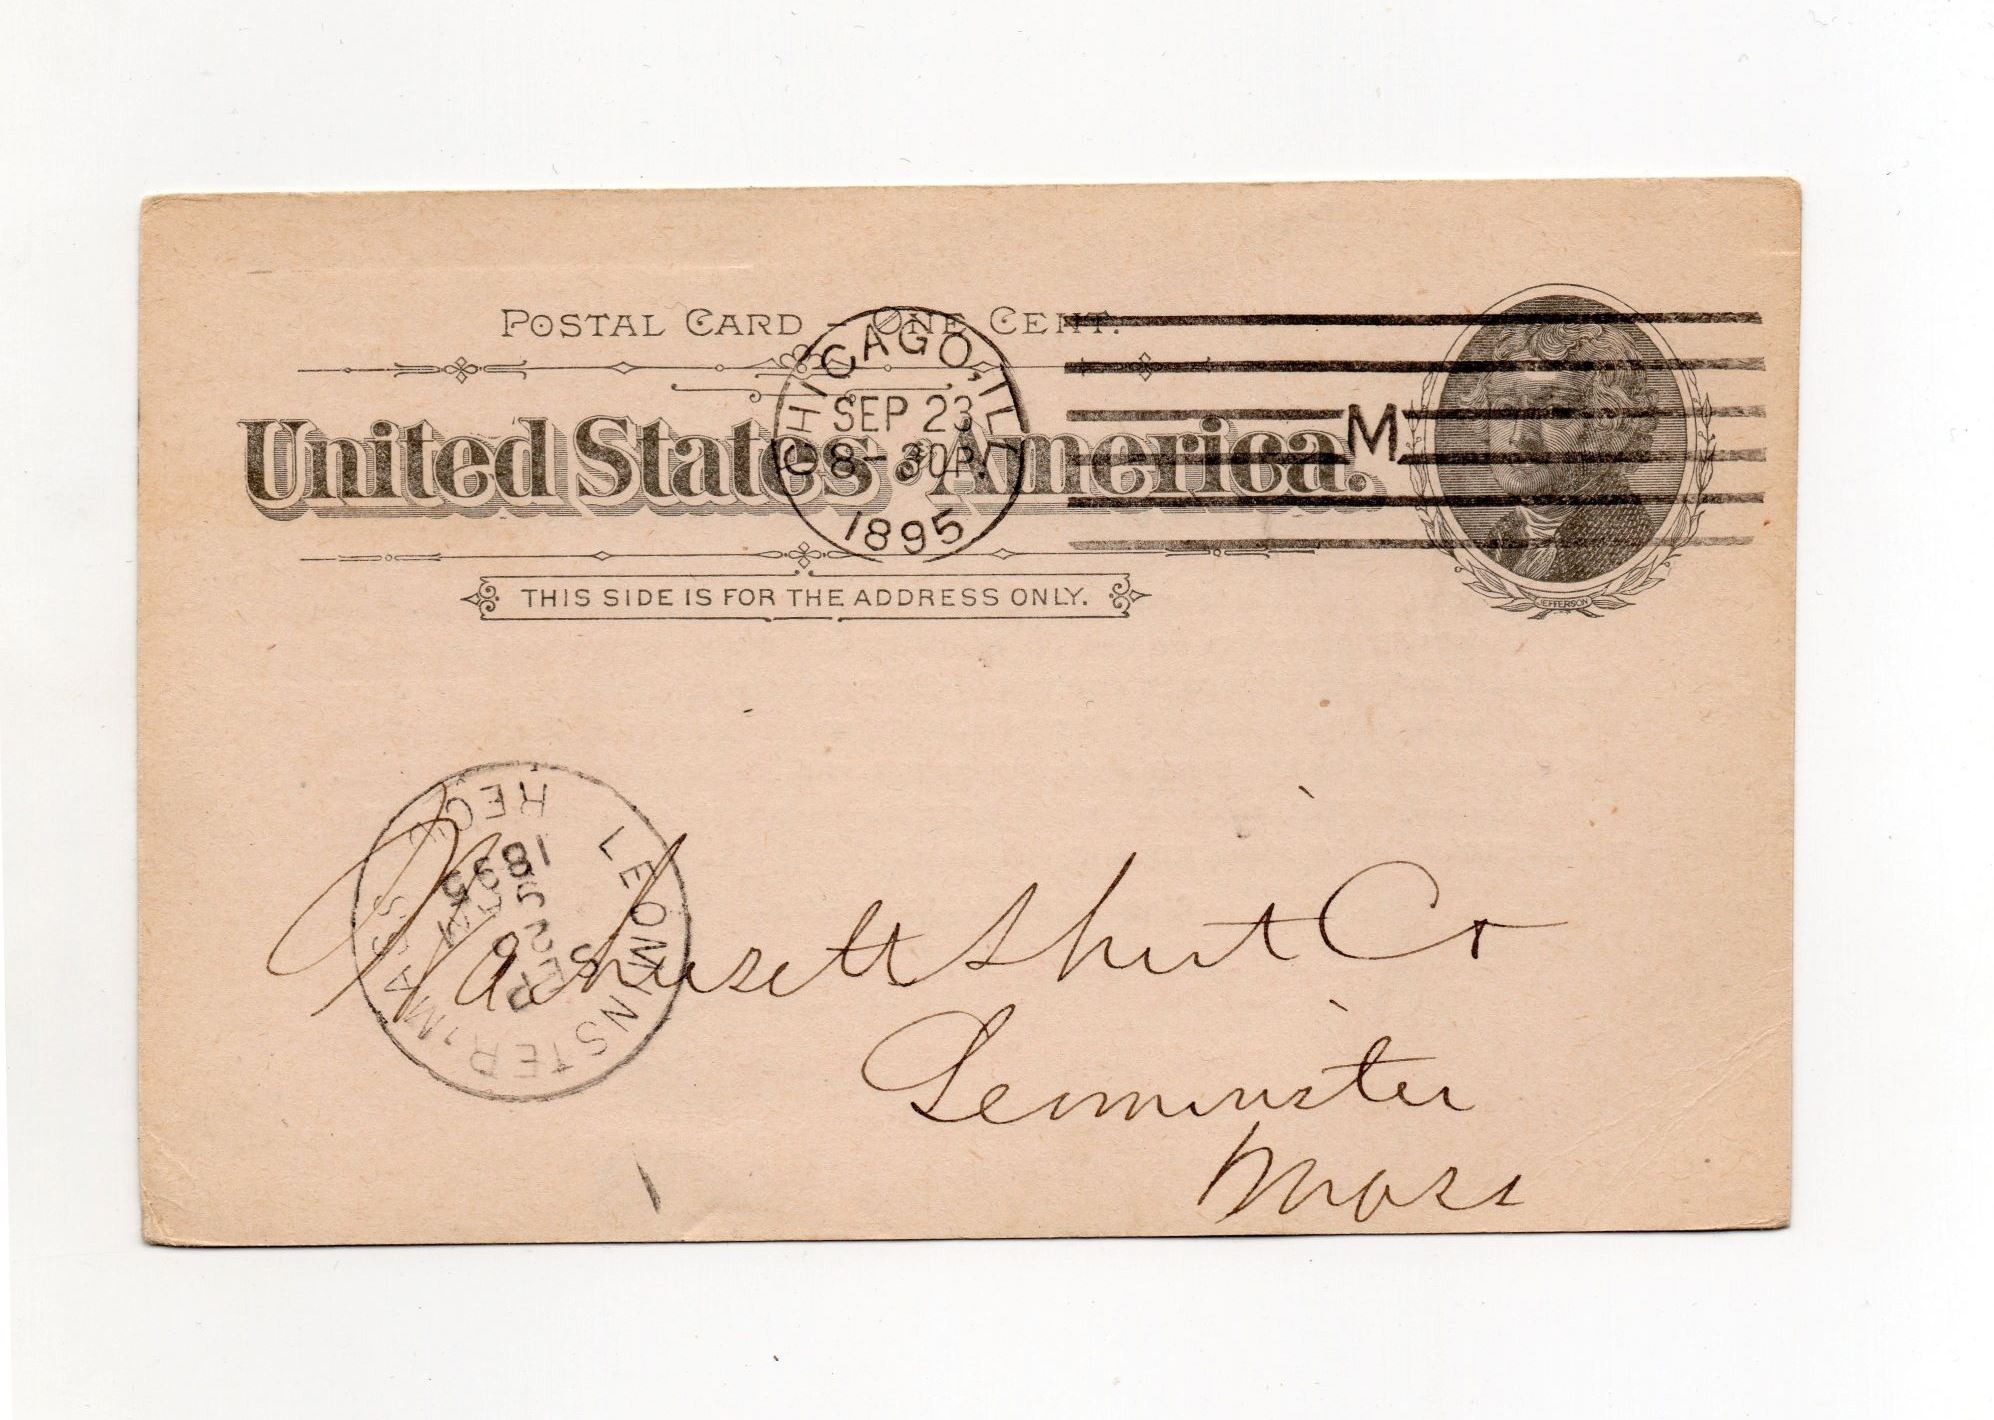 POSTAL CARD – ONE CENT.
United States of America.
THIS SIDE IS FOR THE ADDRESS ONLY.
JEFFERSON
CHICAGO, ILL.
SEP 23
8-30P
1895
M
LEOMINSTER, MASS
REC'D
SEP
25
1895
Wachusett Shirt Co
Leominster
Mass